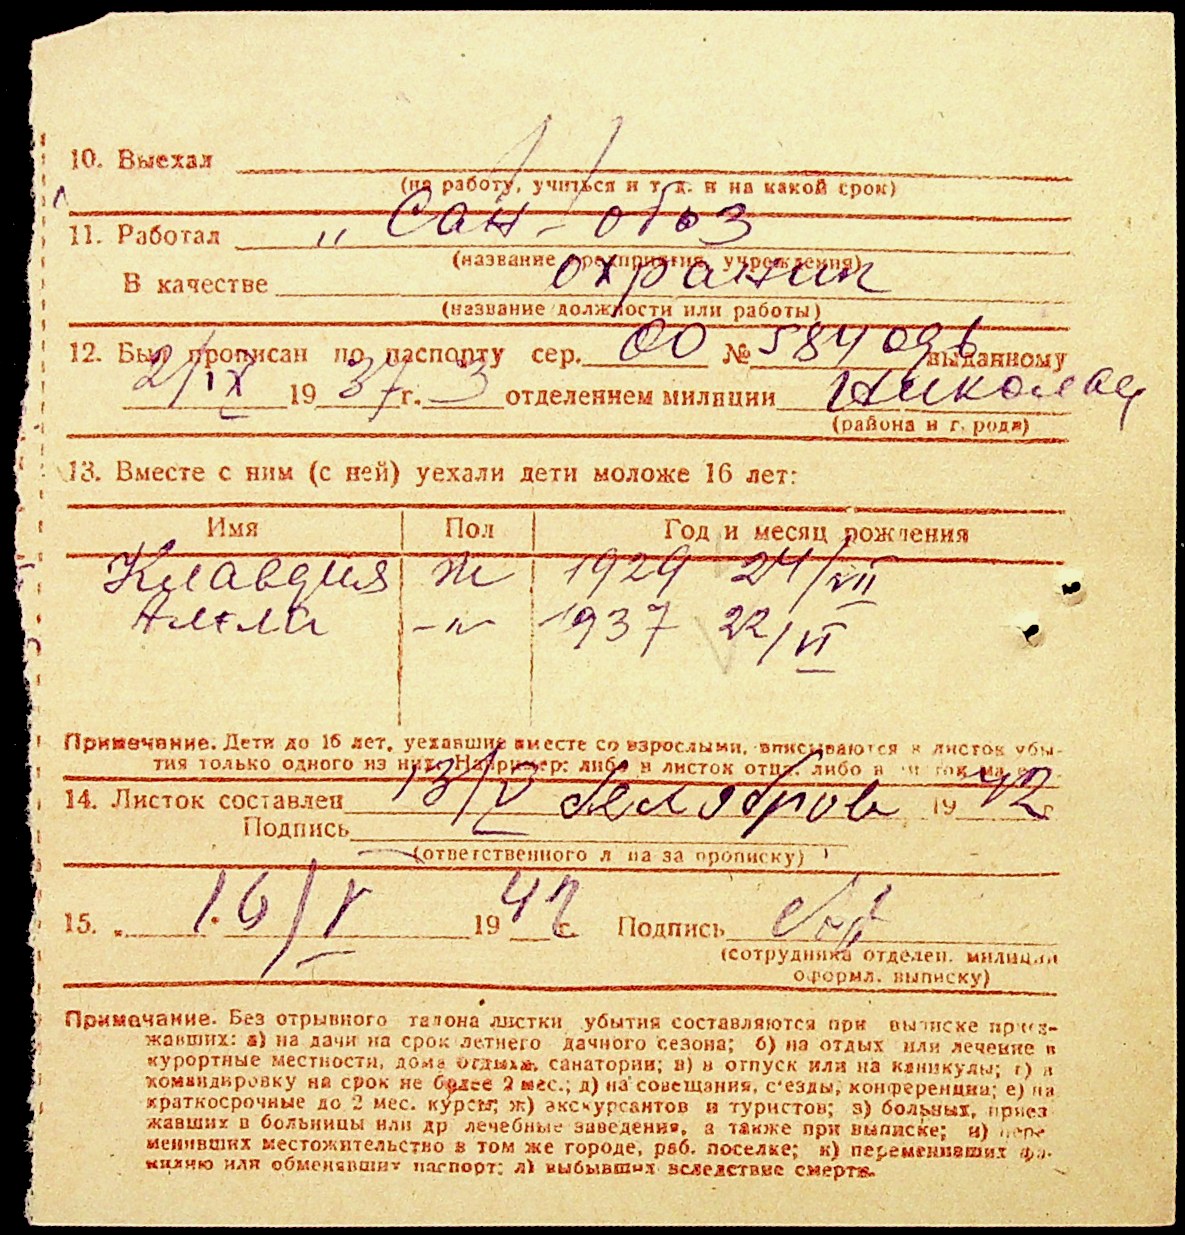 10. Выехал
(на работу, учиться и т. д. и на какой срок)
11. Работал „ Сан-обоз
(название предприятия, учреждения)
В качестве охраник
(название должности или работы)
12. Был прописан по паспорту сер. ОО № 584096 выданному
2/IX 1937 г. 3 отделением милиции Николаев
(района и города)
13. Вместе с ним (с ней) уехали дети моложе 16 лет:
Имя Пол Год и месяц рождения
Клавдия Ж 1929 24/VII
-"- 1937 22/VI
Примечание. Дети до 16 лет, уехавшие вместе со взрослыми, вписываются в листок убы-
тия только одного из них. Например: либо в листок отца, либо в листок
14. Листок составлен 13/V 1942 г.
Подпись
(ответственного лица за прописку)
15. „ 16/V 1942 г. Подпись
(сотрудника отделен. милиции
оформл. выписку)
Примечание. Без отрывного талона листки убытия составляются при выписке приез-
жавших: а) на дачи на срок летнего дачного сезона; б) на отдых или лечение в
курортные местности, дома отдыха, санатории; в) в отпуск или на каникулы; г) в
командировку на срок не более 2 мес.; д) на совещания, с'езды, конференции; е) на
краткосрочные до 2 мес. курсы; ж) экскурсантов и туристов; з) больных, приез
жавших в больницы или др лечебные заведения, а также при выписке; и) пере
менивших местожительство в том же городе, раб. поселке; к) переменивших фа-
милию или обменявших паспорт; л) выбывших вследствие смерти.